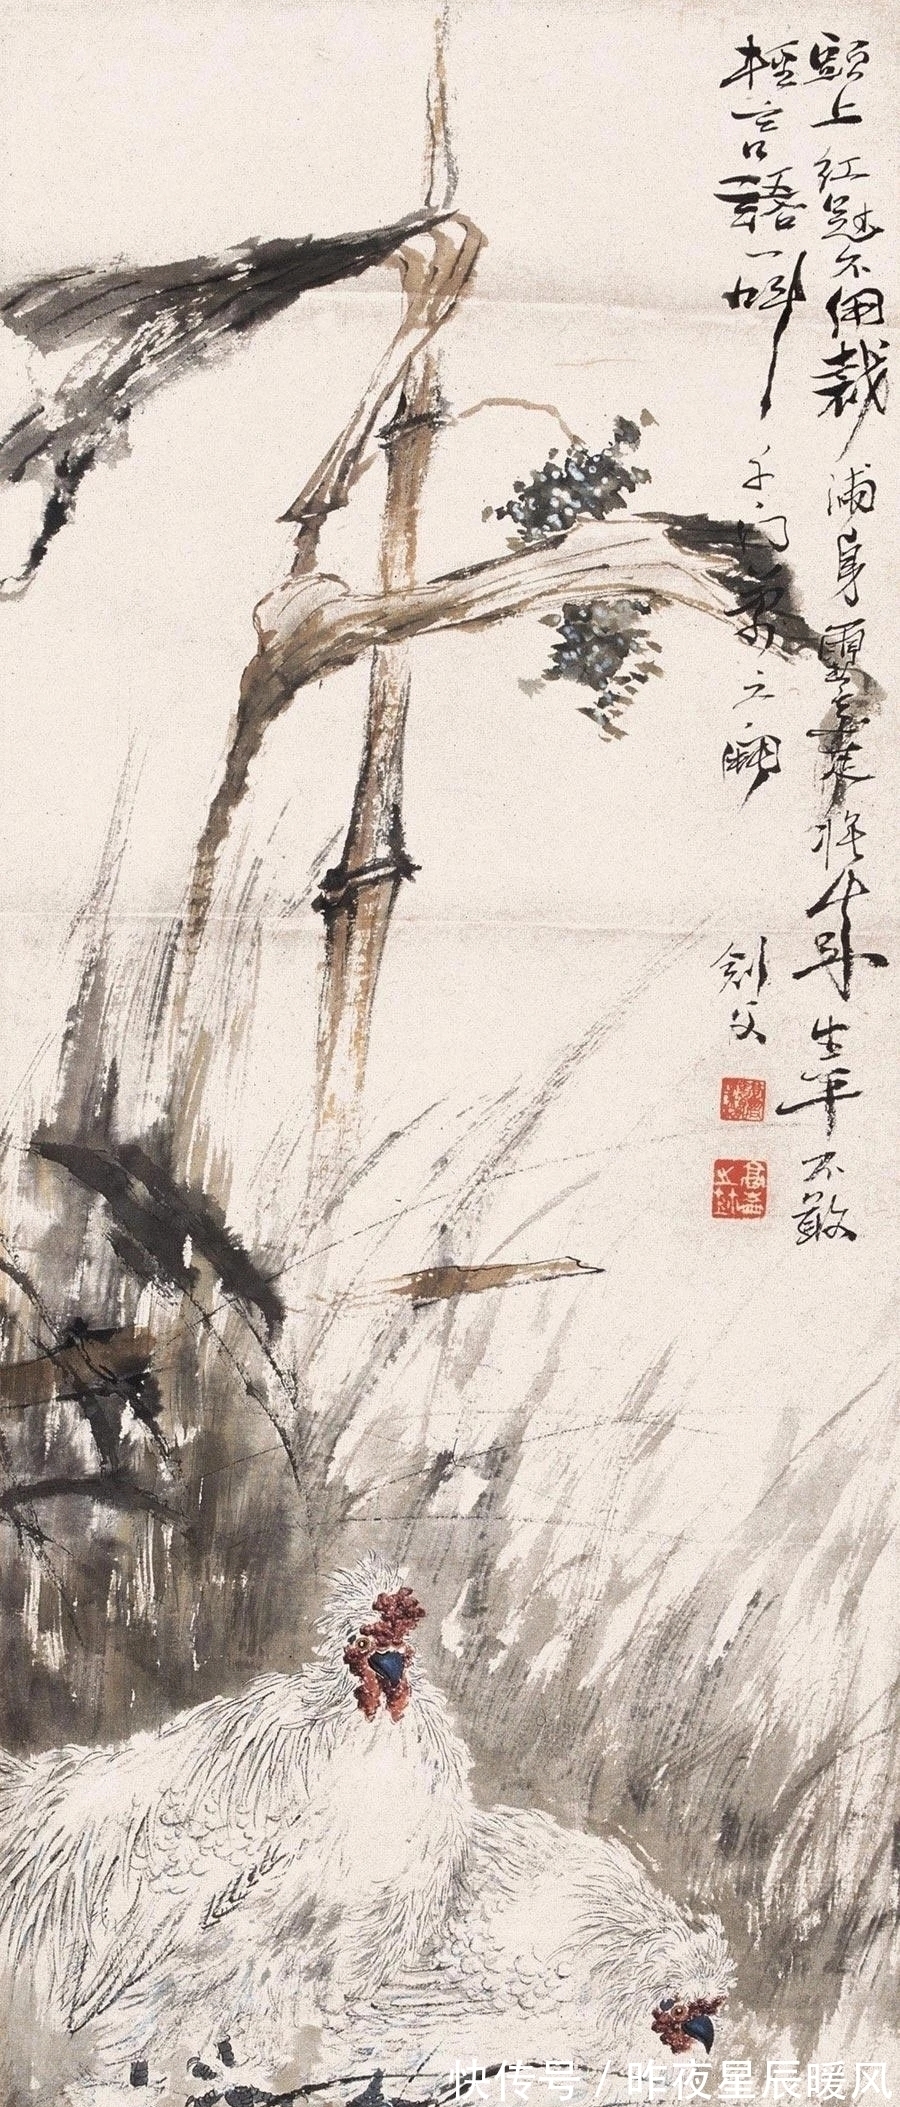 頭上紅冠不用裁滿身雪白走將來生平不敢
輕言語一叫千門萬户開
劍父
快传号 / 昨夜星辰暖风